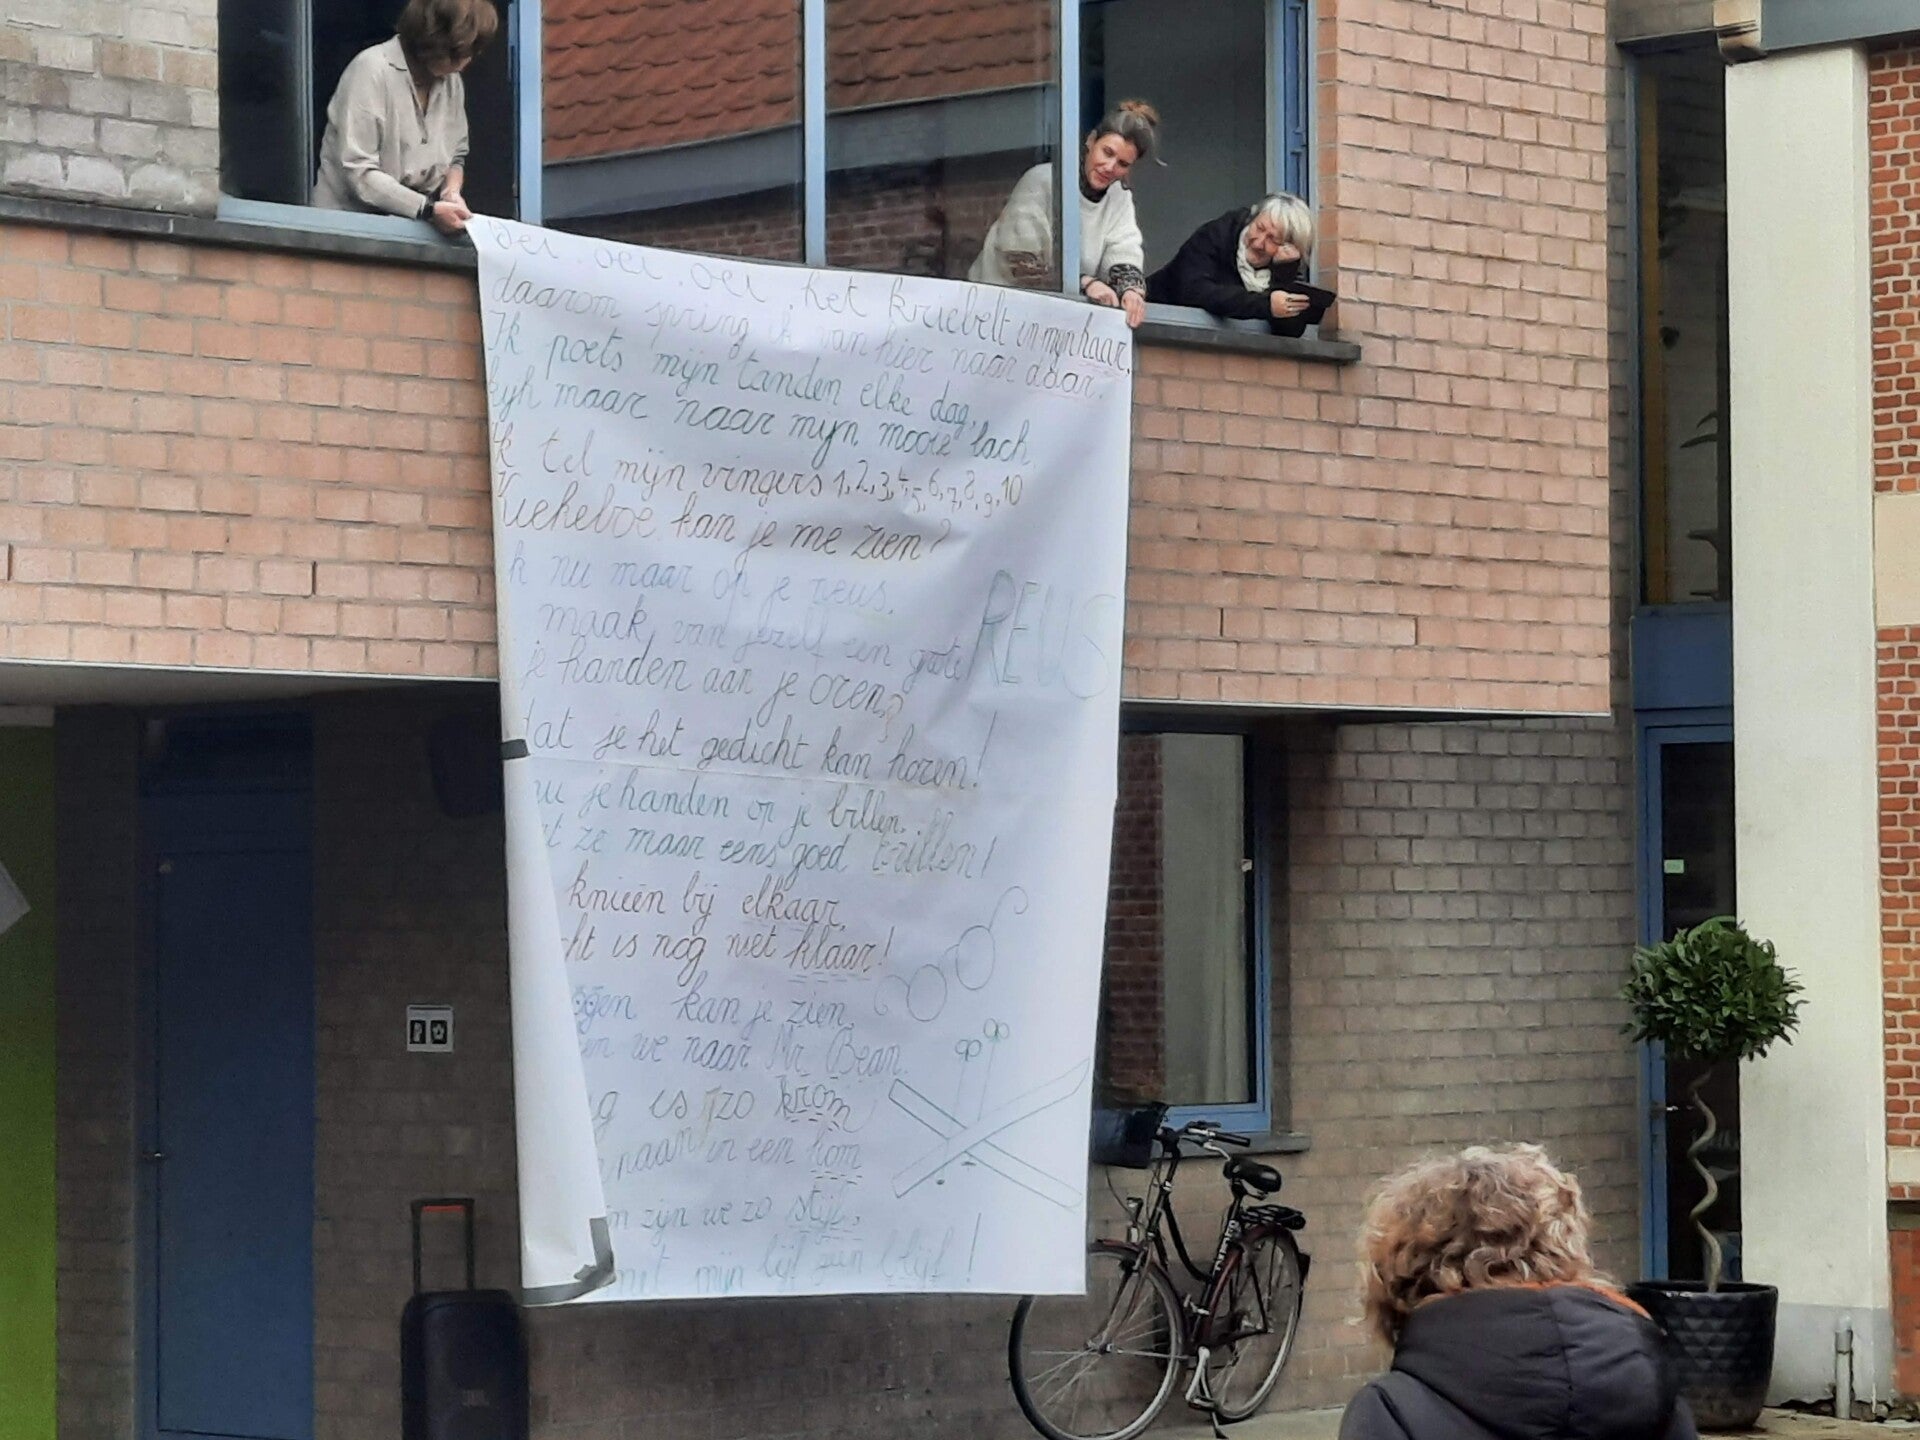 oei, oei, oei, het kriebelt in mijn haar,
daarom spring ik van hier naar daar.
Ik poets mijn tanden elke dag,
kijk maar naar mijn mooie lach.
k tel mijn vingers 1,2,3,4,5,6,7,8,9,10
Kiekeboe kan je me zien?
k nu maar op je reus,
maak van jezelf een grote REUS
je handen aan je oren?
dat je het gedicht kan horen!
nu je handen op je billen,
t ze maar eens goed trillen!
knieën bij elkaar,
cht is nog niet klaar!
ogen kan je zien
en we naar Mr Bean.
g is zo krom
naar in een kom
n zijn we zo stijf,
met mijn lijf zien blijf!